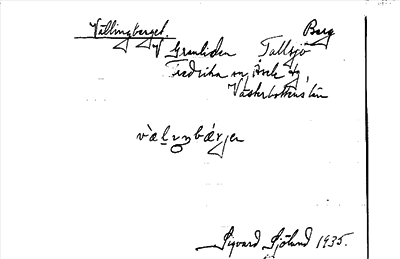 Vällingberget. Berg
V Granliden Tallsjö
Fredrika sn, Åsele lg,
Västerbottens län
Sigvard Sjölund 1935.